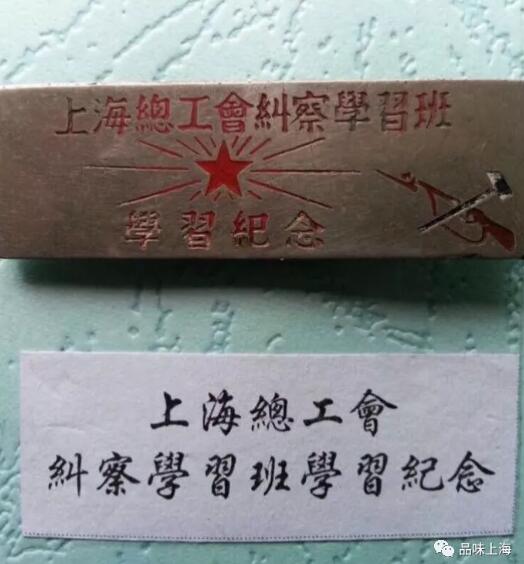 上海總工會糾察學習班
學習紀念
上海總工會
糾察學習班學習紀念
品味上海